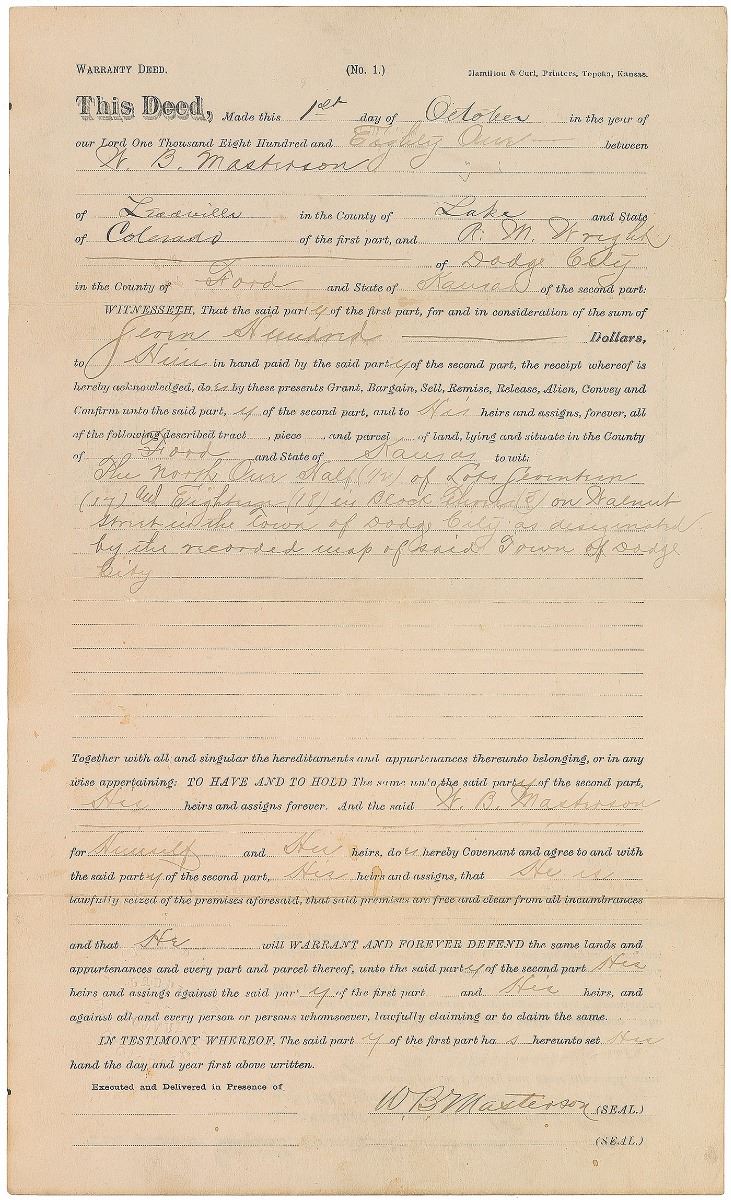 WARRANTY DEED. (No. 1.) Hamilton & Curl, Printers, Topeka, Kansas.
This Deed, Made this 1st day of October in the year of
our Lord One Thousand Eight Hundred and Eighty One between
W. B. Masterson
of Leadville in the County of Lake and State
of Colorado of the first part, and R. M. Wright
of Dodge City
in the County of Ford and State of Kansas of the second part:
WITNESSETH, That the said party of the first part, for and in consideration of the sum of
Seven Hundred Dollars,
to Him in hand paid by the said party of the second part, the receipt whereof is
hereby acknowledged, does by these presents Grant, Bargain, Sell, Remise, Release, Alien, Convey and
Confirm unto the said part, y of the second part, and to His heirs and assigns, forever, all
of the following described tract , piece , and parcel of land, lying and situate in the County
of Ford and State of Kansas to wit:
The North One Half (½) of Lots Seventeen
(17) and Eighteen (18) in Block Three (3) on Walnut
Street in the Town of Dodge City as designated
by the recorded map of said Town of Dodge
City
Together with all and singular the hereditaments and appurtenances thereunto belonging, or in any
wise appertaining: TO HAVE AND TO HOLD The same unto the said party of the second part,
His heirs and assigns forever. And the said W. B. Masterson
for Himself and His heirs, does hereby Covenant and agree to and with
the said party of the second part, His heirs and assigns, that He is
lawfully seized of the premises aforesaid, that said premises are free and clear from all incumbrances
and that He will WARRANT AND FOREVER DEFEND the same lands and
appurtenances and every part and parcel thereof, unto the said party of the second part His
heirs and assings against the said party of the first part and His heirs, and
against all and every person or persons whomsoever, lawfully claiming or to claim the same.
IN TESTIMONY WHEREOF, The said party of the first part has hereunto set His
hand the day and year first above written.
Executed and Delivered in Presence of
W. B. Masterson (SEAL.)
(SEAL.)